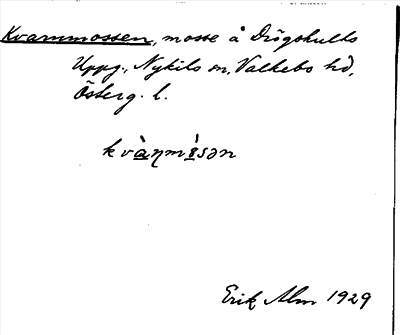 Kvarnmossen, mosse å Drögshults
Uppg., Nykils sn, Valkebo hd,
Österg. l.
Erik Alm 1929